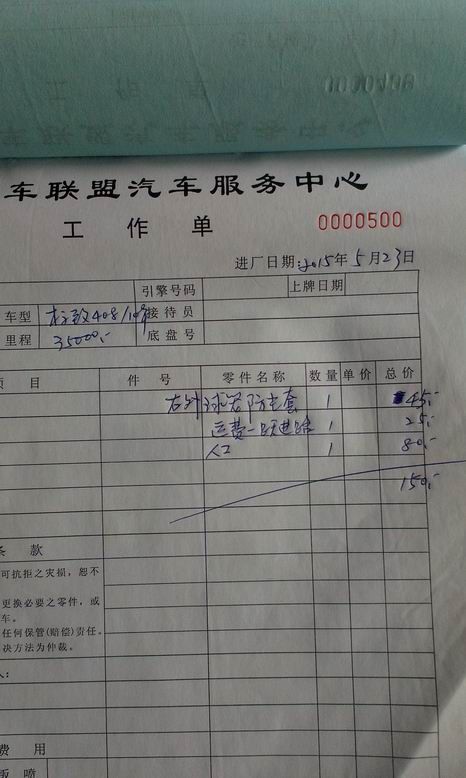 车联盟汽车服务中心
工作单 0000500
进厂日期:2015年5月23日
引擎号码 上牌日期
车型 标致408/10年 接待员
里程 35000.- 底盘号
项目 件号 零件名称 数量 单价 总价
右外球笼防尘套 1 45.-
运费一 1 25.-
人工 1 80.-
150.-
条款
可抗拒之灾损,恕不
更换必要之零件,或
车。
任何保管(赔偿)责任。
决方法为仲裁。
人:
费用
钣喷